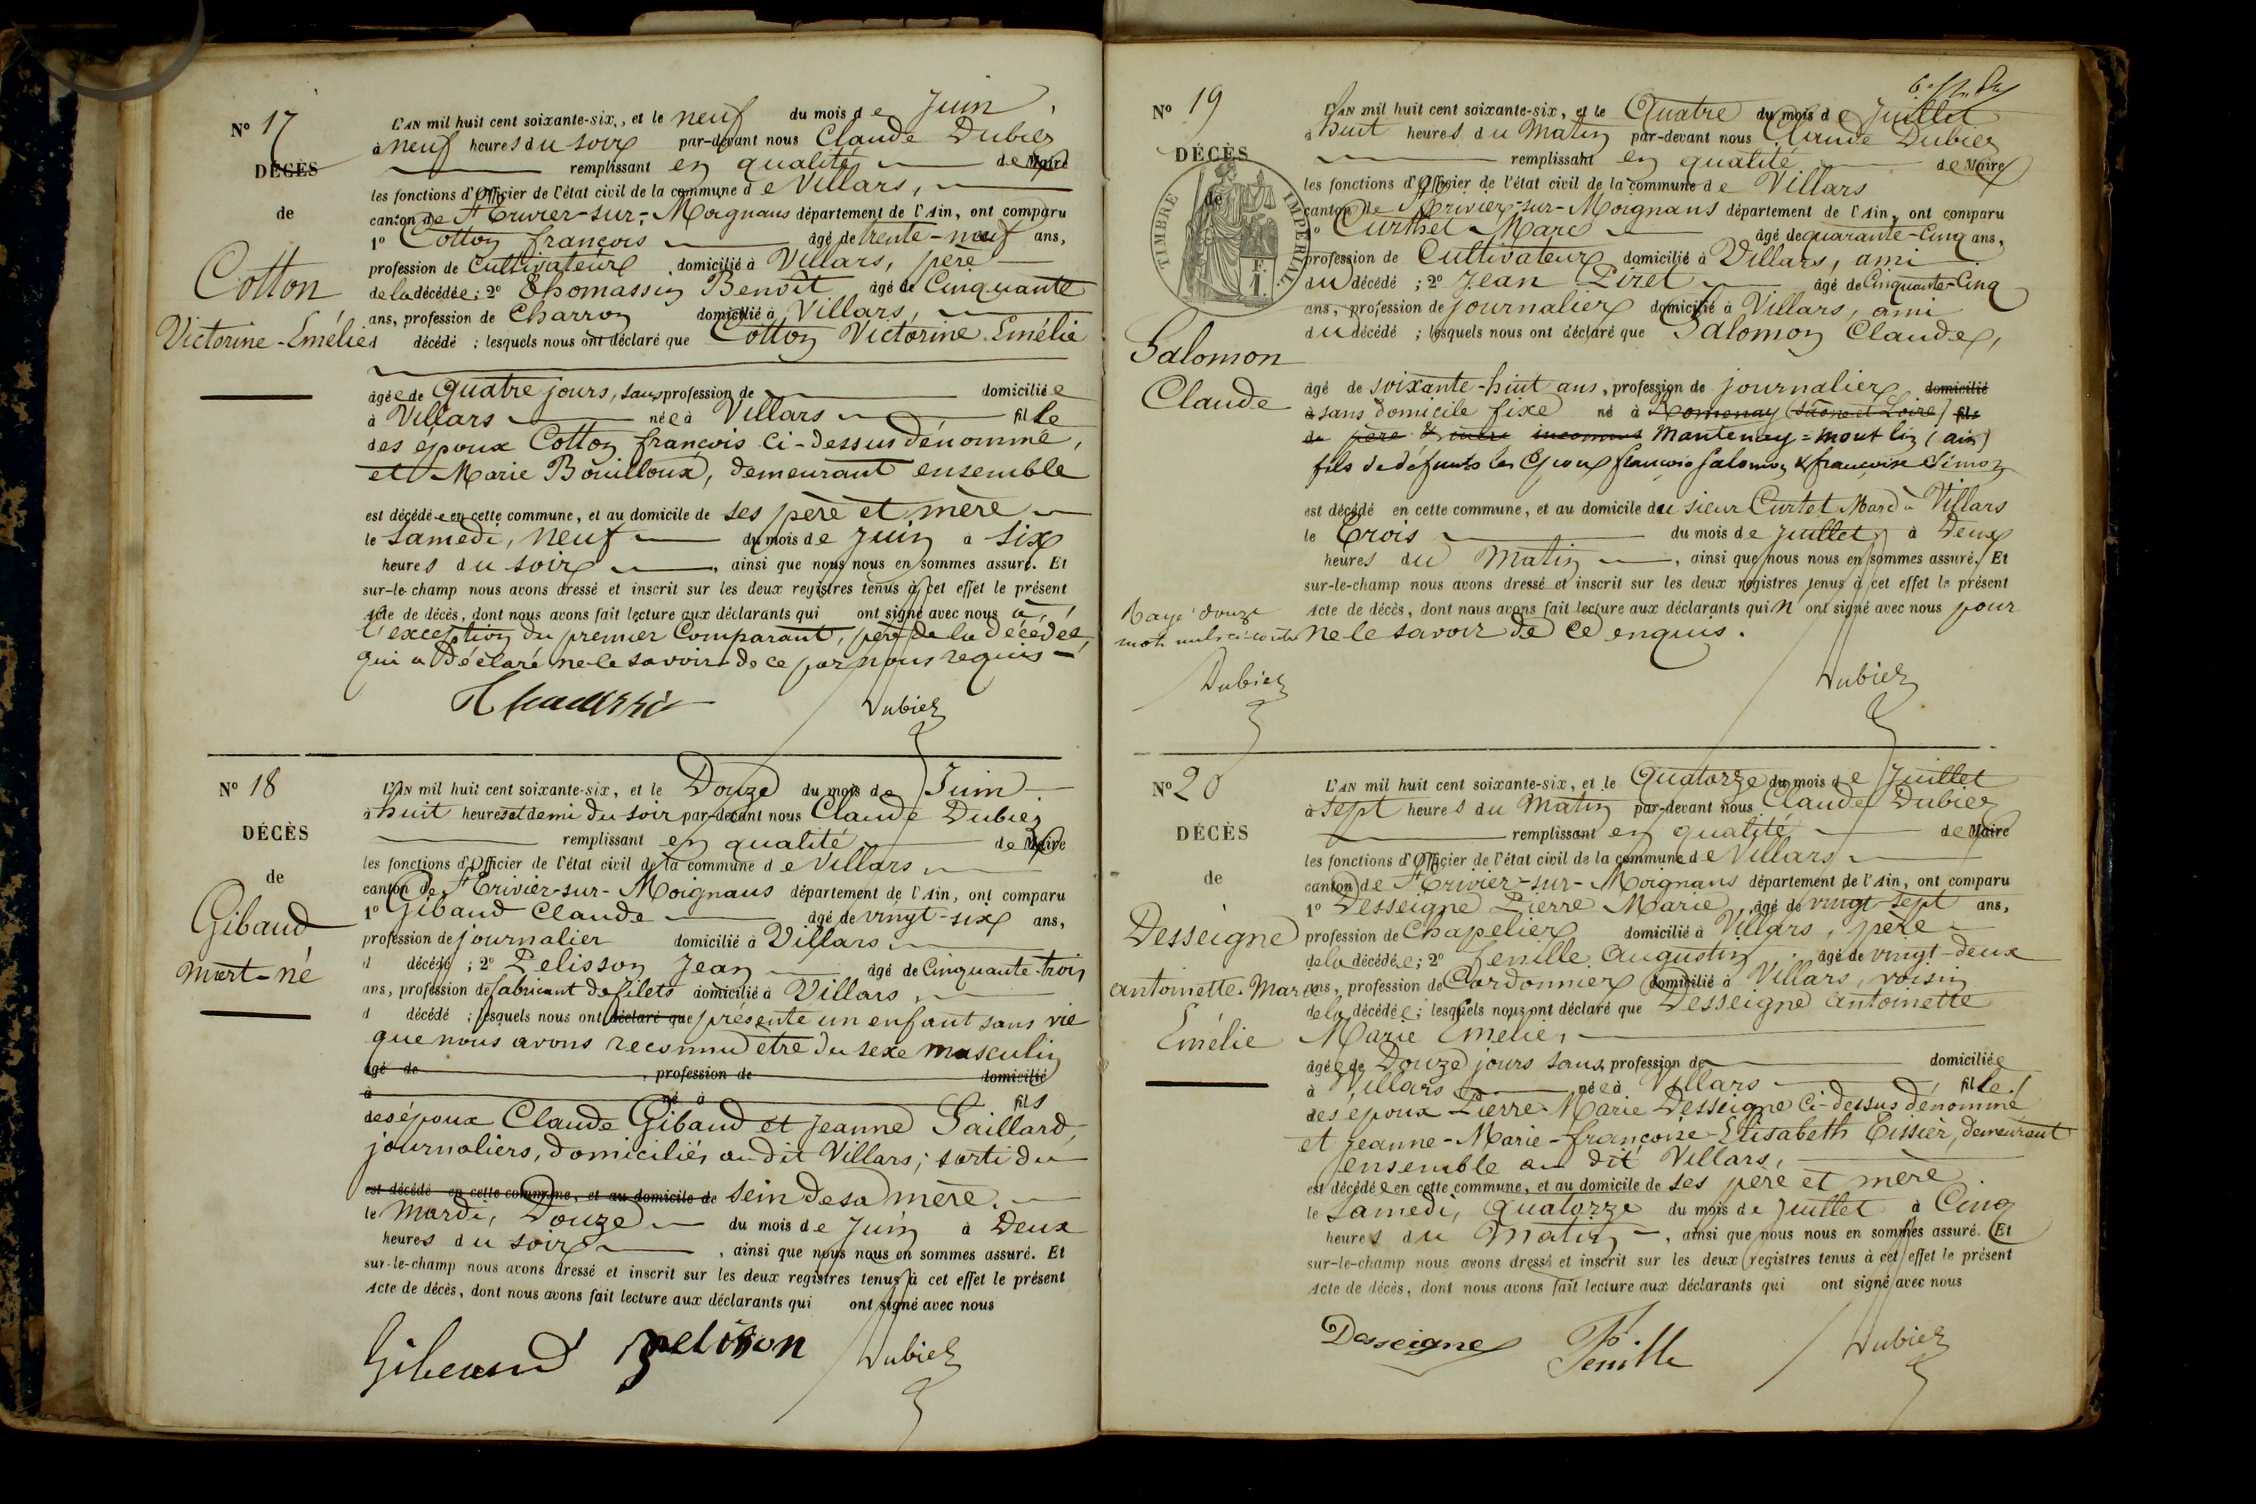 Nº 17
DÉCÈS
de
Cotton
Victorine-Emélie
L'AN mil huit cent soixante-six, et le neuf du mois de Juin,
à neuf heures du soir par-devant nous Claude Dubiez
remplissant en qualité de Maire
les fonctions d'Officier de l'état civil de la commune de Villars,
canton de St Trivier-sur-Moignans département de l'Ain, ont comparu
1º Cotton françois âgé de trente-neuf ans,
profession de Cultivateur domicilié à Villars, père
de la décédée ; 2º Thomassin Benoît âgé de Cinquante
ans, profession de Charron domicilié à Villars,
d décédé ; lesquels nous ont déclaré que Cotton Victorine Emélie
âgée de quatre jours, sans profession de domiciliée
à Villars née à Villars fille
des époux Cotton françois ci-dessus dénommé,
et Marie Bouilloux, demeurant ensemble
est décédée en cette commune, et au domicile de ses père et mère
le samedi, neuf du mois de Juin à six
heures du soir, ainsi que nous nous en sommes assuré. Et
sur-le-champ nous avons dressé et inscrit sur les deux registres tenus à cet effet le présent
Acte de décès, dont nous avons fait lecture aux déclarants qui ont signé avec nous à
l'exception du premier Comparant, père de la décédée,
qui a déclaré ne le savoir de ce par nous requis
Dubiez
Nº 18
DÉCÈS
de
Gibaud
mort-né
L'AN mil huit cent soixante-six, et le Douze du mois de Juin
à huit heures et demi du soir par-devant nous Claude Dubiez
remplissant en qualité de Maire
les fonctions d'Officier de l'état civil de la commune de Villars
canton de St Trivier-sur-Moignans département de l'Ain, ont comparu
1º Gibaud Claude âgé de vingt-six ans,
profession de journalier domicilié à Villars
d décédé ; 2º Pelisson Jean âgé de Cinquante-trois
ans, profession de fabricant de filets domicilié à Villars,
d décédé ; lesquels nous ont déclaré que présenté un enfant sans vie
que nous avons reconnu être du sexe masculin
âgé de , profession de domicilié
à né à fils
des époux Claude Gibaud et Jeanne Gaillard,
journaliers, domiciliés au dit Villars ; sorti du
est décédé en cette commune, et au domicile de sein de sa mère.
le mardi, Douze du mois de Juin à Deux
heures du soir, ainsi que nous nous en sommes assuré. Et
sur-le-champ nous avons dressé et inscrit sur les deux registres tenus à cet effet le présent
Acte de décès, dont nous avons fait lecture aux déclarants qui ont signé avec nous
Gibaud pelisson Dubiez
Nº 19
DÉCÈS
de
TIMBRE IMPÉRIAL
Salomon
Claude
L'AN mil huit cent soixante-six, et le Quatre du mois de Juillet
à huit heures du Matin par-devant nous Claude Dubiez
remplissant en qualité de Maire
les fonctions d'Officier de l'état civil de la commune de Villars
canton de St Trivier-sur-Moignans département de l'Ain, ont comparu
1º Curthet Marc âgé de quarante-Cinq ans,
profession de Cultivateur domicilié à Villars, ami
du décédé ; 2º Jean Piret âgé de Cinquante-Cinq
ans, profession de journalier domicilié à Villars, ami
du décédé ; lesquels nous ont déclaré que Salomon Claude,
âgé de soixante-huit ans, profession de journalier, domicilié
à sans domicile fixe né à Romenay (Saône et Loire) fils
de père & mère inconnus Mantenay=Montlin (ain)
fils de défunts les Epoux françois Salomon & françoise Simon
est décédé en cette commune, et au domicile du sieur Curtet Marc à Villars
le Trois du mois de Juillet à Deux
heures du Matin, ainsi que nous nous en sommes assuré. Et
sur-le-champ nous avons dressé et inscrit sur les deux registres tenus à cet effet le présent
Acte de décès, dont nous avons fait lecture aux déclarants qui n'ont signé avec nous pour
ne le savoir de ce enquis.
Rayé douze
mots nuls ci contre
Dubiez
Dubiez
Nº 20
DÉCÈS
de
Desseigne
antoinette-Marie
Emélie
L'AN mil huit cent soixante-six, et le Quatorze du mois de Juillet
à sept heures du Matin par-devant nous Claude Dubiez
remplissant en qualité de Maire
les fonctions d'Officier de l'état civil de la commune de Villars
canton de St Trivier-sur-Moignans département de l'Ain, ont comparu
1º Desseigne Pierre Marie, âgé de vingt-sept ans,
profession de Chapelier domicilié à Villars, père
de la décédée ; 2º Fenille Augustin âgé de vingt-deux
ans, profession de Cordonnier domicilié à Villars, voisin
de la décédée ; lesquels nous ont déclaré que Desseigne antoinette
Marie Emélie,
âgée de Douze jours sans profession de domiciliée
à Villars née à Villars fille
des époux Pierre-Marie Desseigne ci-dessus dénommé
et Jeanne-Marie-françoise Elisabeth Tissier, demeurant
ensemble au dit Villars,
est décédée en cette commune, et au domicile de ses père et mère
le samedi, Quatorze du mois de Juillet à Cinq
heures du Matin, ainsi que nous nous en sommes assuré. Et
sur-le-champ nous avons dressé et inscrit sur les deux registres tenus à cet effet le présent
Acte de décès, dont nous avons fait lecture aux déclarants qui ont signé avec nous
Desseigne Fenille Dubiez